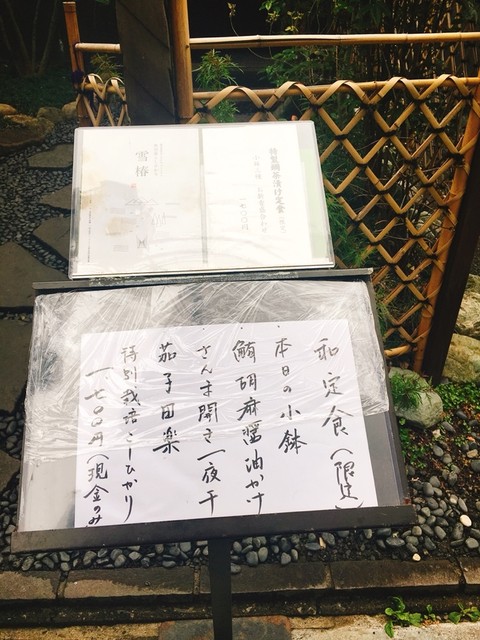 特製鯛茶漬け定食
一七〇〇円
雪椿
和定食(限定)
・本日の小鉢
・鮪胡麻醤油かけ
・さんま開き一夜干
茄子田楽
特別栽培こしひかり
一、七〇〇円(現金のみ